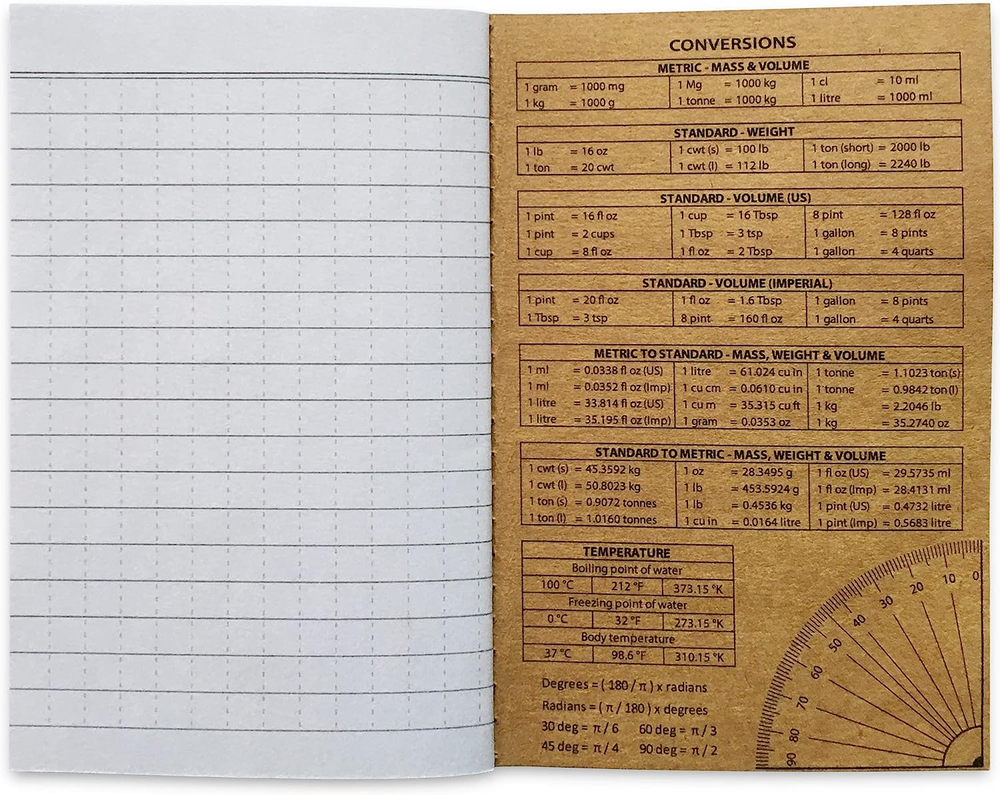 CONVERSIONS
METRIC - MASS & VOLUME
1 gram = 1000 mg 1 Mg = 1000 kg 1 cl = 10 ml
1 kg = 1000 g 1 tonne = 1000 kg 1 litre = 1000 ml
STANDARD - WEIGHT
1 lb = 16 oz 1 cwt (s) = 100 lb 1 ton (short) = 2000 lb
1 ton = 20 cwt 1 cwt (l) = 112 lb 1 ton (long) = 2240 lb
STANDARD - VOLUME (US)
1 pint = 16 fl oz 1 cup = 16 Tbsp 8 pint = 128 fl oz
1 pint = 2 cups 1 Tbsp = 3 tsp 1 gallon = 8 pints
1 cup = 8 fl oz 1 fl oz = 2 Tbsp 1 gallon = 4 quarts
STANDARD - VOLUME (IMPERIAL)
1 pint = 20 fl oz 1 fl oz = 1.6 Tbsp 1 gallon = 8 pints
1 Tbsp = 3 tsp 8 pint = 160 fl oz 1 gallon = 4 quarts
METRIC TO STANDARD - MASS, WEIGHT & VOLUME
1 ml = 0.0338 fl oz (US) 1 litre = 61.024 cu in 1 tonne = 1.1023 ton(s)
1 ml = 0.0352 fl oz (Imp) 1 cu cm = 0.0610 cu in 1 tonne = 0.9842 ton(l)
1 litre = 33.814 fl oz (US) 1 cu m = 35.315 cu ft 1 kg = 2.2046 lb
1 litre = 35.195 fl oz (Imp) 1 gram = 0.0353 oz 1 kg = 35.2740 oz
STANDARD TO METRIC - MASS, WEIGHT & VOLUME
1 cwt (s) = 45.3592 kg 1 oz = 28.3495 g 1 fl oz (US) = 29.5735 ml
1 cwt (l) = 50.8023 kg 1 lb = 453.5924 g 1 fl oz (Imp) = 28.4131 ml
1 ton (s) = 0.9072 tonnes 1 lb = 0.4536 kg 1 pint (US) = 0.4732 litre
1 ton (l) = 1.0160 tonnes 1 cu in = 0.0164 litre 1 pint (Imp) = 0.5683 litre
TEMPERATURE
Boiling point of water
100 °C 212 °F 373.15 °K
Freezing point of water
0 °C 32 °F 273.15 °K
Body temperature
37 °C 98.6 °F 310.15 °K
Degrees = ( 180 / π ) x radians
Radians = ( π / 180 ) x degrees
30 deg = π / 6 60 deg = π / 3
45 deg = π / 4 90 deg = π / 2
0
10
20
30
40
50
60
70
80
90